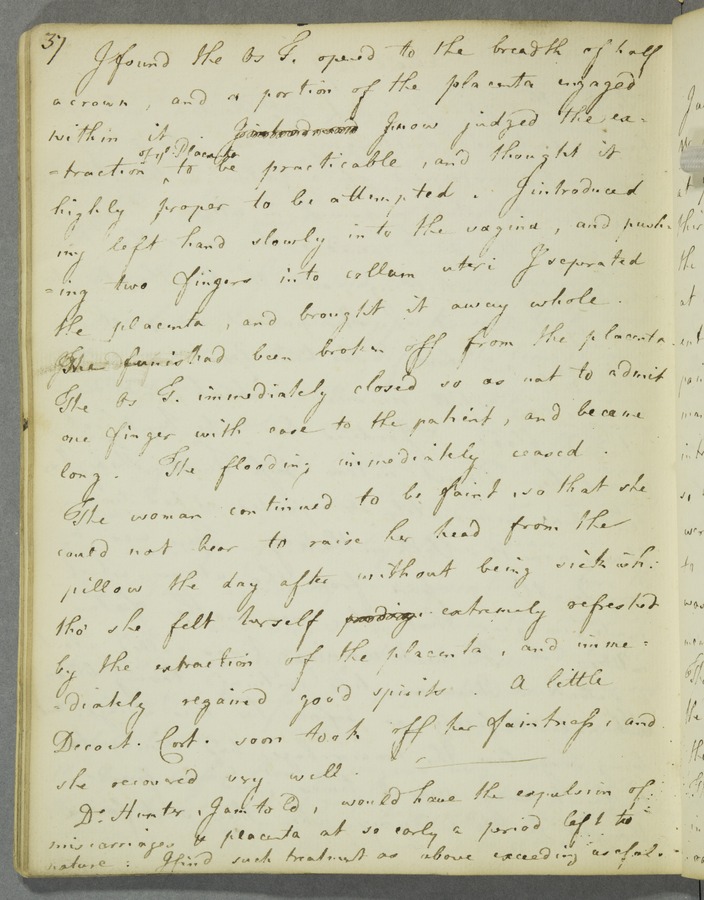 37
I found the Os T. opened to the breadth of half
a crown, and a portion of the placenta engaged
within it. I now judged the ex-
of ye. Placenta
=traction to be practicable, and thought it
highly proper to be attempted. I introduced
my left hand slowly into the vagina, and push-
=ing two fingers into collum uteri I seperated
the placenta, and brought it away whole.
The funis had been broken off from the placenta.
The Os T. immediately closed so as not to admit
one finger with ease to the patient, and became
long. The flooding immediately ceased.
The woman continued to be faint, so that she
could not bear to raise her head from the
pillow the day after without being sickish:
tho' she felt herself extremely refreshed
by the extraction of the placenta, and imme=
=diately regained good spirits. A little
Decoct. Cort. soon took off her faintness, and
she recovered very well.
Dr. Hunter, I am told, would have the expulsion of
miscarriages & placenta at so early a period left to
nature: I find such treatment as above exceeding useful.